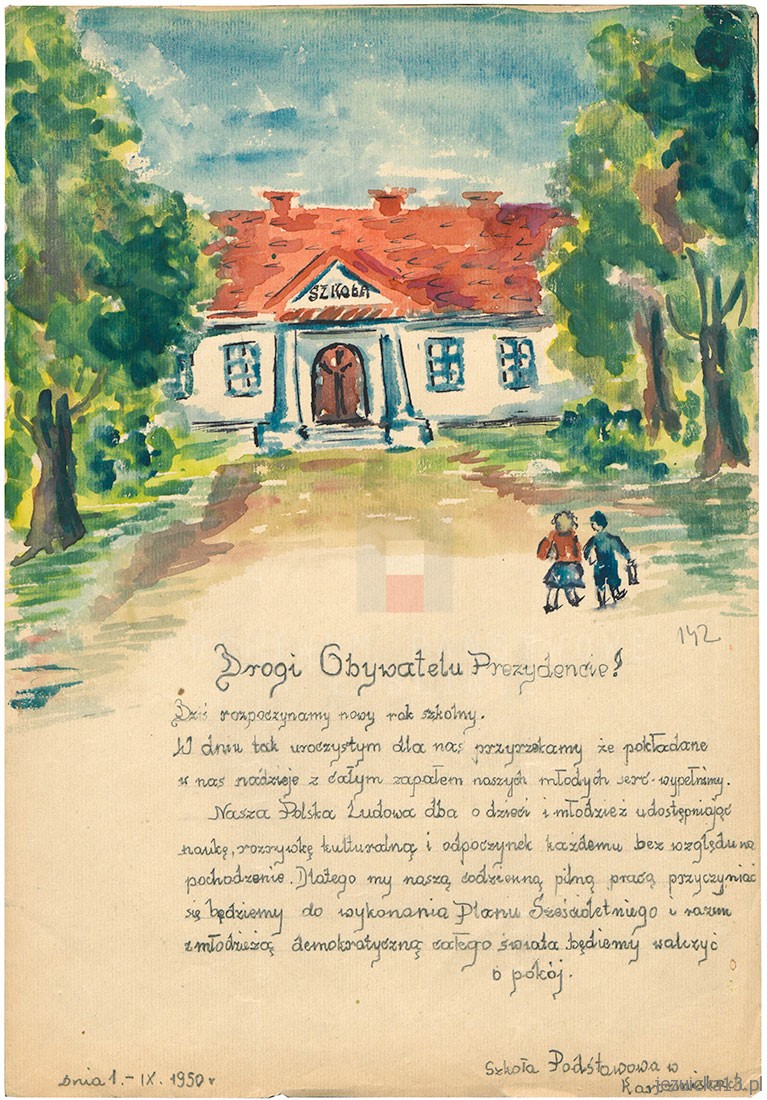 SZKOŁA
142
Drogi Obywatelu Prezydencie!
Dziś rozpoczynamy nowy rok szkolny.
W dniu tak uroczystym dla nas przyrzekamy że pokładane
w nas nadzieje z całym zapałem naszych młodych serc wypełnimy.
Nasza Polska Ludowa dba o dzieci i młodzież udostępniając
naukę, rozrywkę kulturalną i odpoczynek każdemu bez względu na
pochodzenie. Dlatego my naszą codzienną pilną pracą przyczyniać
się będziemy do wykonania Planu Sześcioletniego i razem
z młodzieżą demokratyczną całego świata będziemy walczyć
o pokój.
dnia 1.-IX. 1950 r
Szkoła Podstawowa w